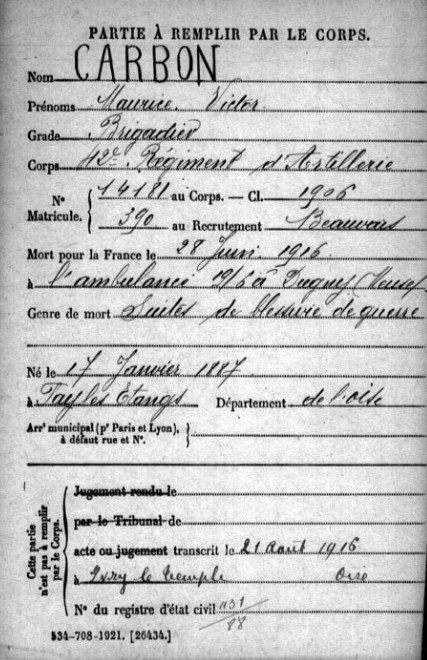 PARTIE À REMPLIR PAR LE CORPS.
Nom CARBON
Prénoms Maurice Victor
Grade Brigadier
Corps 42e Régiment d'Artillerie
No Matricule. 14181 au Corps. — Cl. 1906
390 au Recrutement Beauvais
Mort pour la France le 28 Juin 1916
à l'ambulance 12/6 à Dugny (Meuse)
Genre de mort Suites de blessure de guerre
Né le 17 Janvier 1887
à les Etangs Département de l'oise
Arrt municipal (pr Paris et Lyon),
à défaut rue et No.
Cette partie
n'est pas à remplir
par le Corps.
Jugement rendu le
par le Tribunal de
acte ou jugement transcrit le 21 aout 1916
à Ivry le temple Oise
No du registre d'état civil 1131/88
534-708-1921. [26434.]